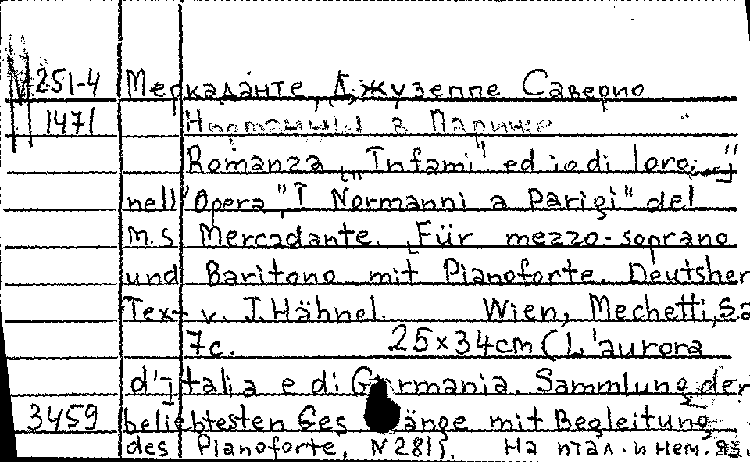 М 251-4 Меркаданте, Джузеппе Саверио
1471 Норманны в Париже
Romanza "Infami" ed io di loro. "
nell'Opera "I Normanni a Parigi" del
M.S Mercadante. Für mezzo-soprano
und Baritono mit Pianoforte. Deutsher
Text v. J. Hähnel. Wien, Mechetti, Sa
7c. 25x34cm (L'aurora
d'Italia e di Germania. Sammlung der
3459 beliebtesten Ges änge mit Begleitung
des Pianoforte, N 281). На итал. и нем. яз.